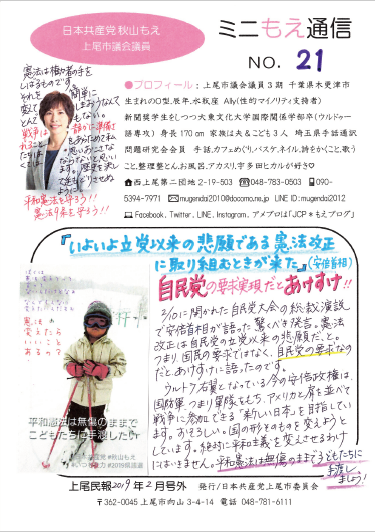 日本共産党 秋山もえ
上尾市議会議員
ミニもえ通信
NO. 21
憲法は権力者の手を
しばるものです。
戦争は
平和憲法を守ろう!!
憲法9条を守ろう!!
●プロフィール：上尾市議会議員３期 千葉県木更津市
生まれのO型、辰年、水瓶座 Ally(性的マイノリティ支持者)
新聞奨学生をしつつ大東文化大学国際関係学部卒(ウルドゥー
語専攻) 身長170㎝ 家族は夫&こども３人 埼玉県手話通訳
問題研究会会員 手話、カフェめぐり、バスケ、ネイル、詩をかくこと、歌う
こと、整理整とん、お風呂、アカスリ、宇多田ヒカルが好き♡
西上尾第二団地2-19-503 ☎048-783-0503 090-
5394-7971 mugendai2010@docomo.ne.jp LINE ID:mugendai2012
Facebook、Twitter、LINE、Instagram、アメブロは「JCP＊もえブログ」
『いよいよ立党以来の悲願である憲法改正
に取り組むときが来た』(安倍首相)
自民党の要求実現だとあけすけ!!
2/10に開かれた自民党大会の総裁演説
で安倍首相が語った驚くべき発言。憲法
改正は自民党の立党以来の悲願だ、と。
つまり、国民の要求ではなく、自民党の要求なの
だとあけすけに語ったのです。
ウルトラ右翼となっている今の安倍政権は、
国防軍、つまり軍隊をもち、アメリカと肩を並べて
戦争に参加できる「新しい日本」を目指してい
ます。おそろしい。国の形そのものを変えようと
しています。絶対に平和憲法を変えさせるわけ
にはいきません。平和憲法は無傷のままで子どもたちに
手渡し
ましょう!
憲法が
変えたら
いいこと
あるの?
平和憲法は無傷のままで
こどもたちに手渡したい
#日本共産党 #秋山もえ
#2019県議選
上尾民報2019年2月号外 発行/日本共産党上尾市委員会
〒362-0045 上尾市向山3-4-14 電話 048-781-6111